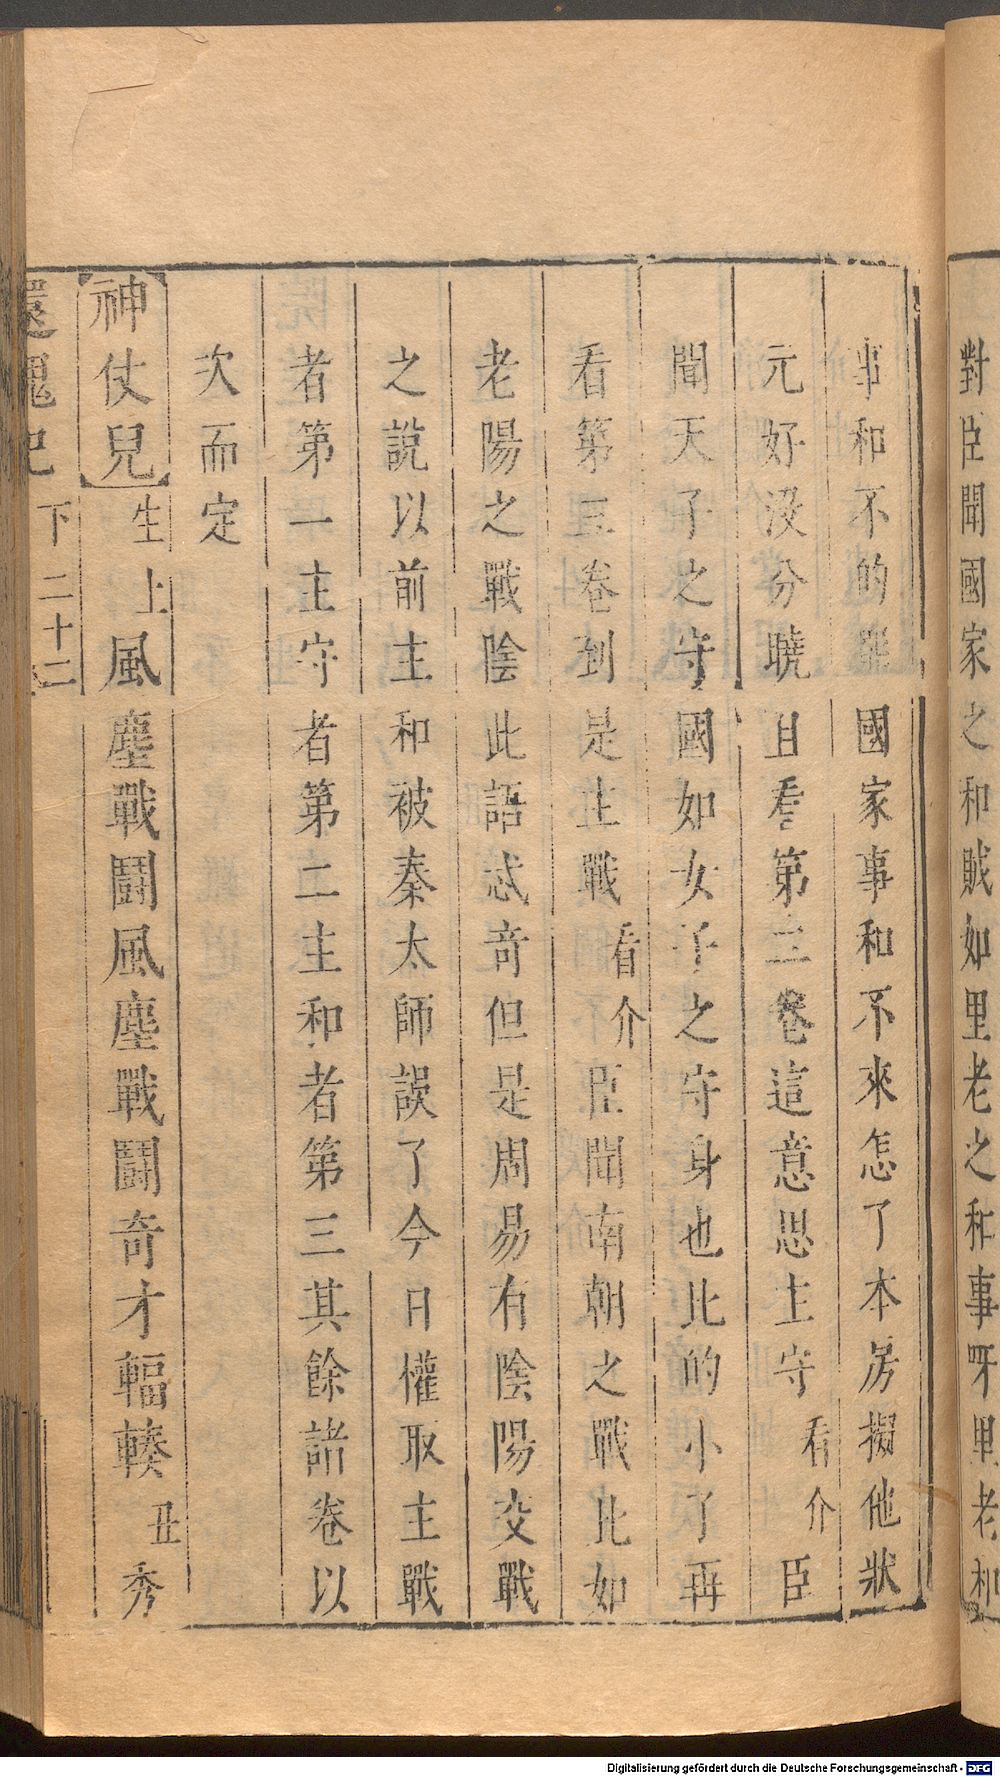 對臣聞國家之和賊如里老之和事呀里老和
事和不的罷國家事和不來怎了本房擬他狀
元好没分曉且看第二卷這意思主守看介臣
聞天子之守國如女子之守身也比的小了再
看第三卷到是主戰看介臣聞南朝之戰北如
老陽之戰陰此語忒奇但是周易有陰陽交戰
之説以前主和被秦太師誤了今日權取主戰
者第一主守者第二主和者第三其餘諸卷以
次而定
神仗兒生上風塵戰鬪風塵戰鬪奇才輻輳丑秀
還魂記 下 二十二
Digitalisierung gefördert durch die Deutsche Forschungsgemeinschaft - DFG